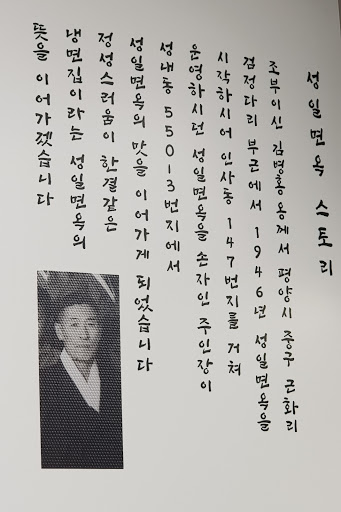 성일면옥 스토리
조부이신 김병홍 옹께서 평양시 중구 근화리
검정다리 부근에서 1946년 성일면옥을
시작하시어 인사동 147번지를 거쳐
운영하시던 성일면옥을 손자인 주인장이
성내동 550-3번지에서
성일면옥의 맛을 이어가게 되었습니다
정성스러움이 한결같은
냉면집이라는 성일면옥의
뜻을 이어가겠습니다